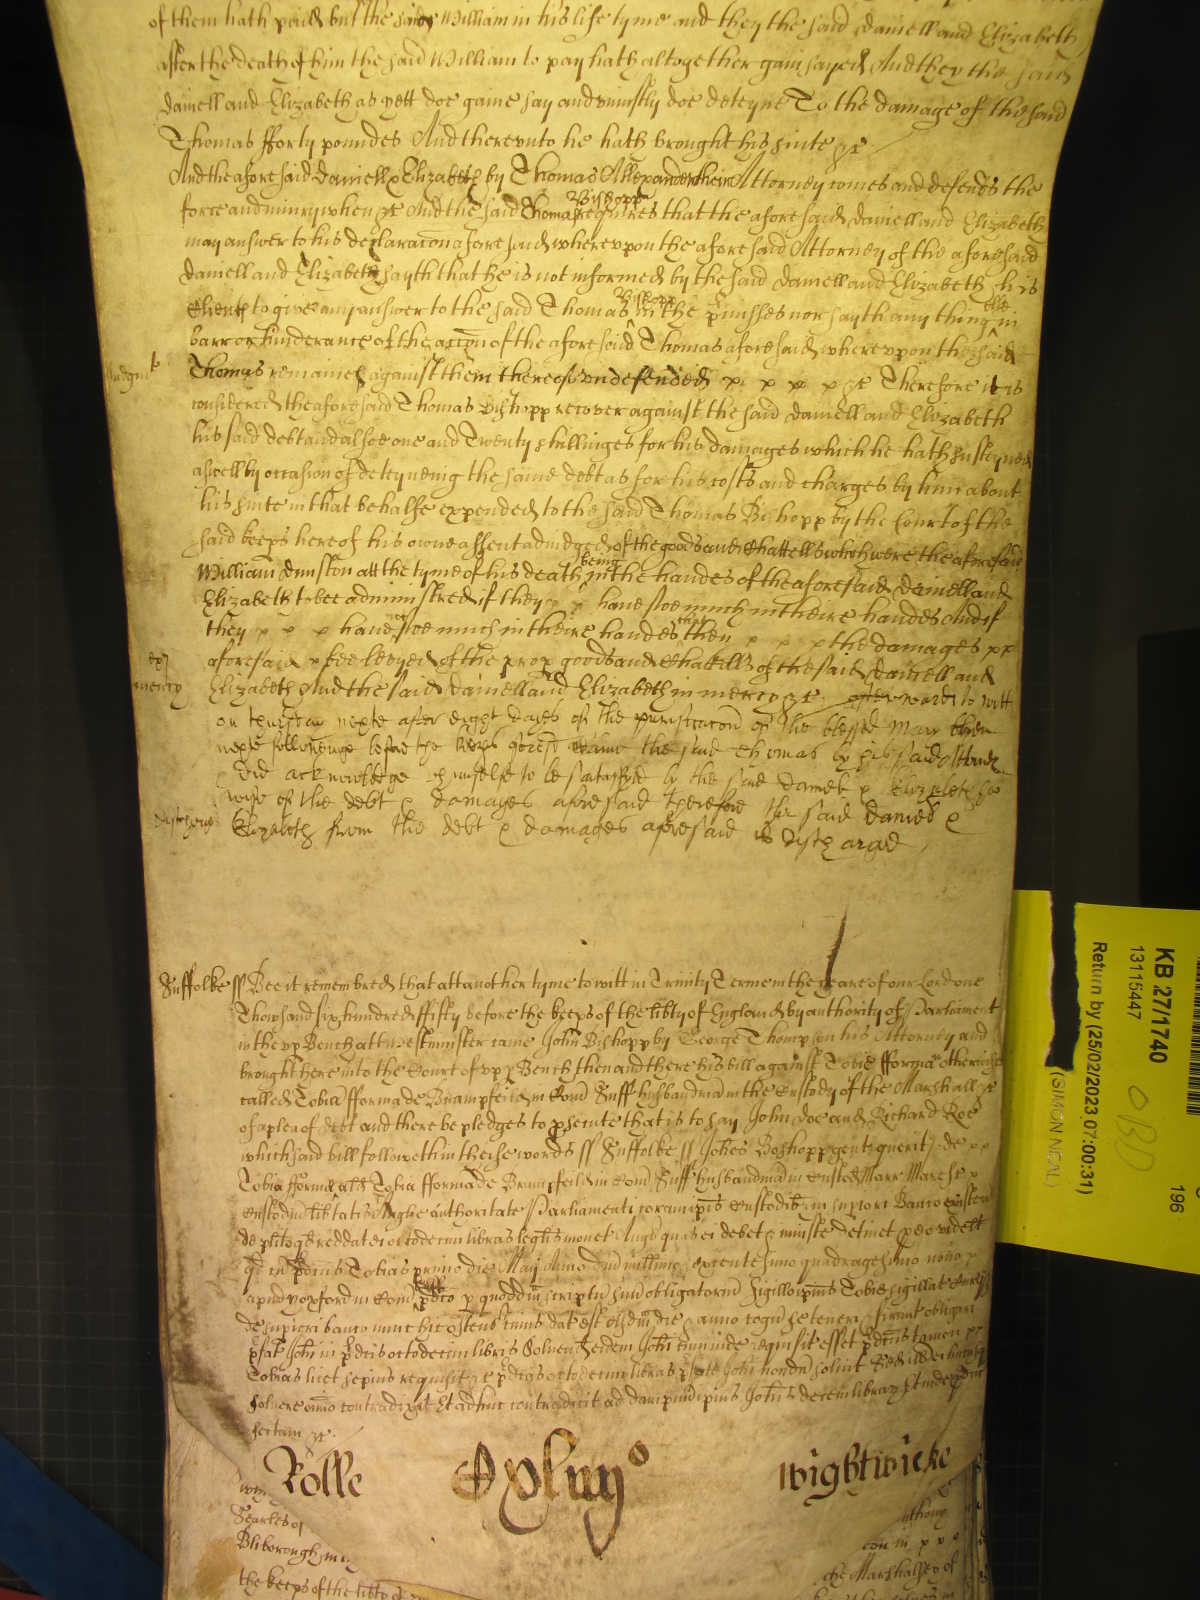 of them hath paid but the said William in his life tyme and they the said daniell and Elizabeth
after the death of him the said William to pay hath altogether gainsayed And they the said
daniell and Elizabeth as yett doe gaine say and uniustly doe deteyne To the damage of the said
Thomas fforty poundes And thereunto he hath brought his suite &c
And the aforesaid daniell & Elizabeth by Thomas Allexander their Attorney comes and defends the
force and iniury when &c And the said Thomas Bishopp requires that the aforesaid daniell and Elizabeth
may answer to his declaracon aforesaid whereupon the aforesaid Attorney of the aforesaid
daniell and Elizabeth sayth that he is not informed by the said daniell and Elizabeth his
Clients to give any answer to the said Thomas Bishopp in the pmisses nor sayth any thing in
barr or hinderance of the accon of the aforesaid Thomas aforesaid whereupon the said
Judgmt Thomas remaineth against them thereof undefended &c Therefore it is
considered the aforesaid Thomas Bishopp recover against the said daniell and Elizabeth
his said debt and alsoe one and Twenty shillinges for his damages which he hath susteyned
aswell by occasion of deteyneing the same debt as for his costs and charges by him about
his suite in that behalfe expended to the said Thomas Bishopp by the Court of the
said keeps here of his owne assent adiudged of the goods and Chattells which were the aforesaid
William dunston att the tyme of his death being in the handes of the aforesaid daniell and
Elizabeth to bee administred if they have soe much in theire handes And if
they have not soe much in theire handes then the damages
aforesaid bee levyed of the prop goods and Chattells of the said daniell and
mercy Elizabeth And the said daniell and Elizabeth in mercy &c afterwards to witt
on thursday nexte after eight dayes of the purificacon of the blessed Mary then
nexte followeinge before the keeps came the said Thomas by his said Attorney
did acknowledge himselfe to be satisfyed by the said daniell & Elizabeth his
wife of the debt & damages aforesaid therefore the said daniell &
Elizabeth from the debt & damages aforesaid is discharged
Suffolke ss Bee it remembred that att another tyme to witt in Trinity Terme in the yeare of our Lord one
Thowsand six hundred fifty before the keeps of the libty of England by authority of Parliament
in the upp Bench att Westminster came John Bishopp by George Thompson his Attorney and
brought here into the Court of upp Bench then and there his bill against Tobie fforma otherwise
called Tobia fforma de Brampfeild in Com Suff husbandman in the Custody of the Marshall &c
of a plea of debt and there be pledges to psecute that is to say John doe and Richard Roe
which said bill followeth in theise words ss Suffolke ss Johes Bishopp gent querit de
Tobia fforma als Tobia fforma de Brampfeild in Com Suff husbandman in Custod Marr Maresc
Custodum libtatis Anglie authoritate Parliamenti coram ipis Custodib in supiori Banco existen
de plito qd reddat ei octodecim libras legalis monet Angl quas ei debet & iniuste detinet p eo videlt
qd cum pdcus Tobias primo die Maij Anno dni millimo sexcentesimo quadragesimo nono
apud yoxford in Com Suff pdco p quoddm scriptu suu obligatoriu Sigillo ipius Tobie sigillat Curieq
de supiori banco nunc hic ostens cuius dat est eisdem die & anno cogn se teneri & firmit obligari
pfat Johi in pdcis octodecim libris Solvend eidem Johi cum inde requisit esset pdcus tamen
Tobias licet sepius requisit &c pdcas octodecim libras pfato Johi nondu solvit Sed ill ei hucusq
solvere omino contradixit Et adhuc contradicit ad dampnu ipius Johis decem librar Et inde pduc
sectam &c
Rolle
Wightwicke
Searles of
Bliborough in
the keeps of the libty of
nthony
com
the Marshallsey of
KB 27/1740
13115447
Return by (25/02/2023 07:00:31)
(SIMON NEAL)
196
OBD